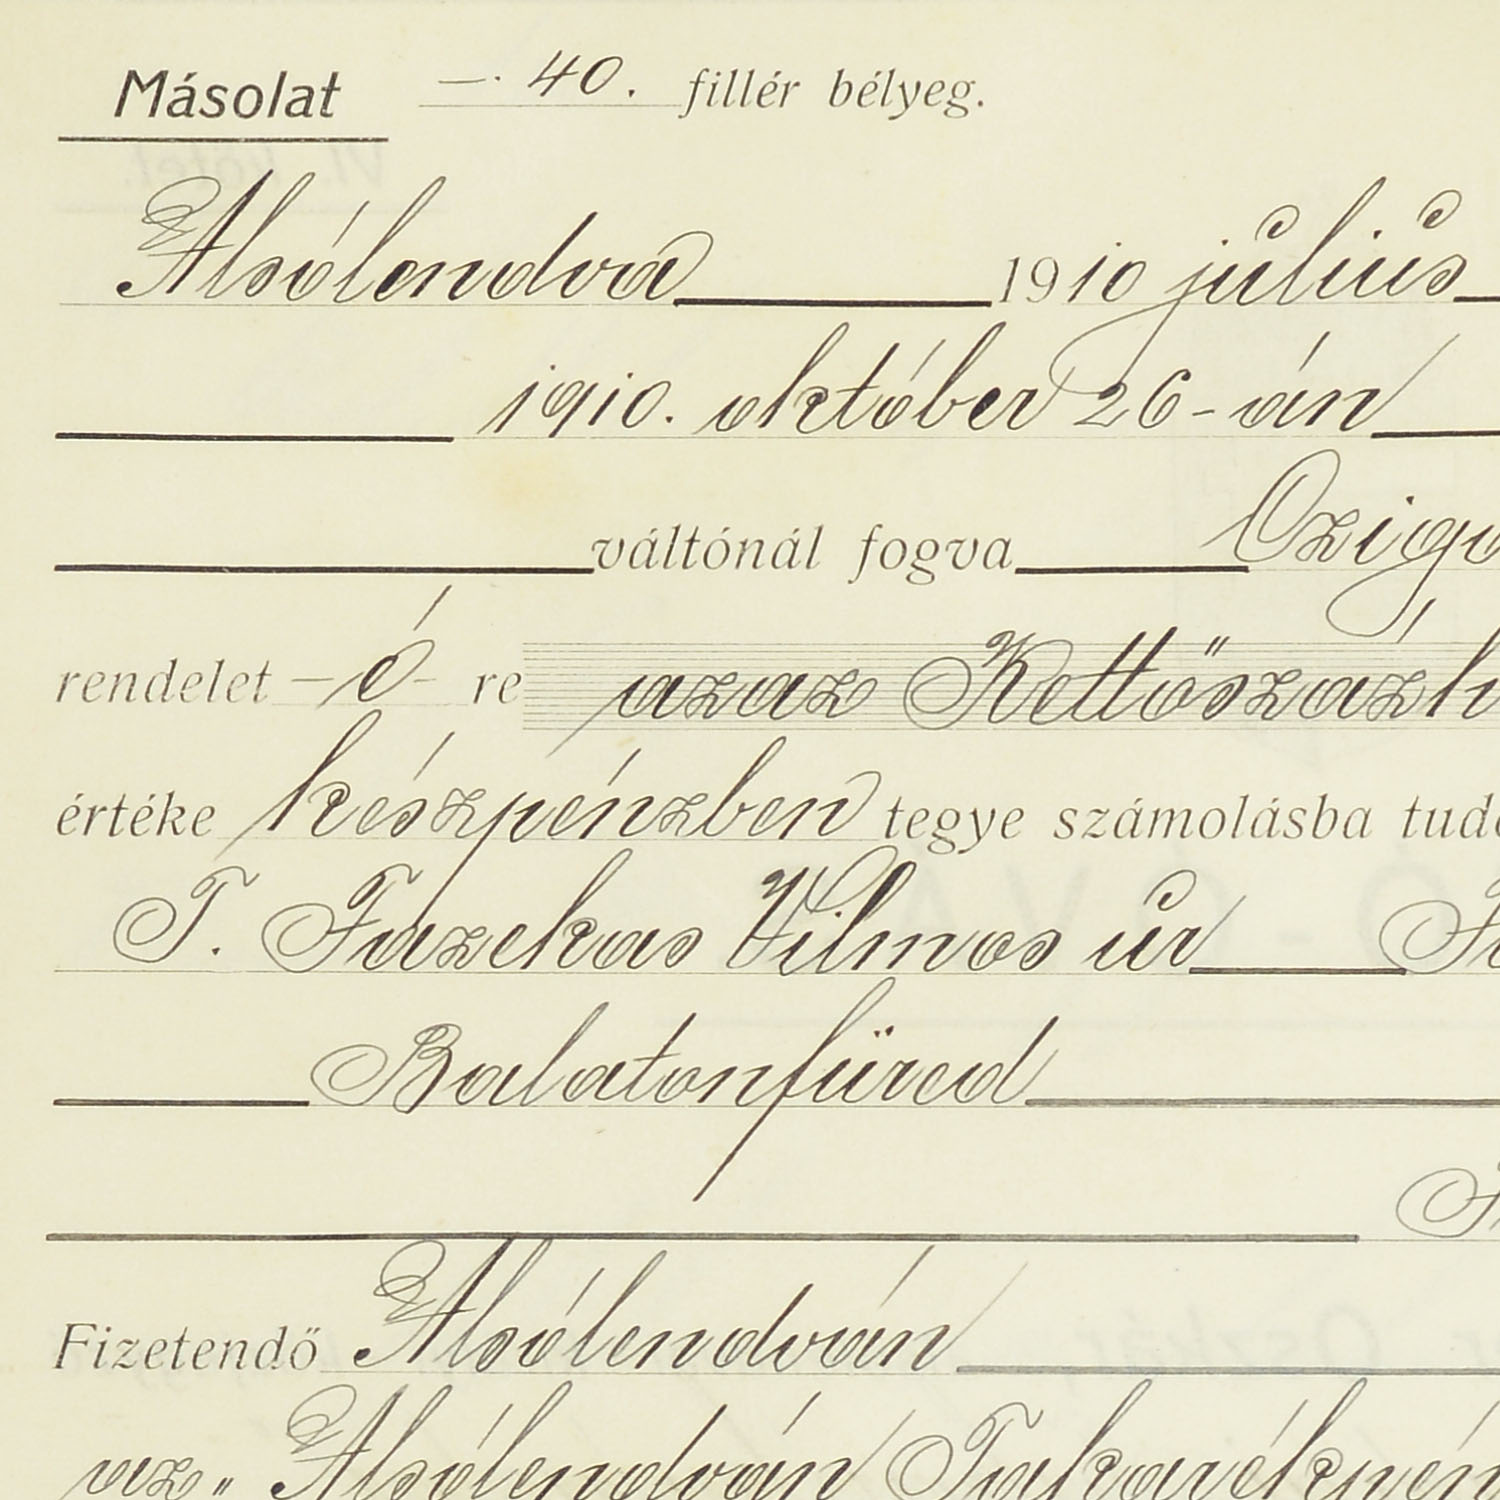 Másolat —. 40. fillér bélyeg.
Alsólendva 1910 július
1910. október 26-án
váltónál fogva Czigá
rendelet – é – re azaz Kettőszázh
értéke készpénzben tegye számolásba tudó
T. Fazekas Vilmos úr
Balatonfüred
Fizetendő Alsólendván
az „Alsólendván Takarékpén